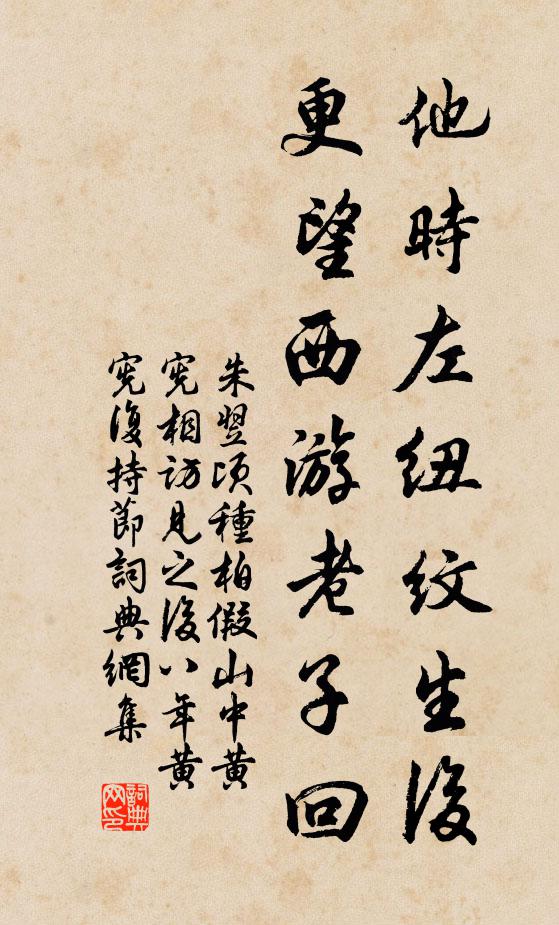 他時左紐紋生後
更望西游老子回
朱翌頃種柏假山中黄
寃相訪見之後八年黄
寃復持節詞典網集
詞典网印